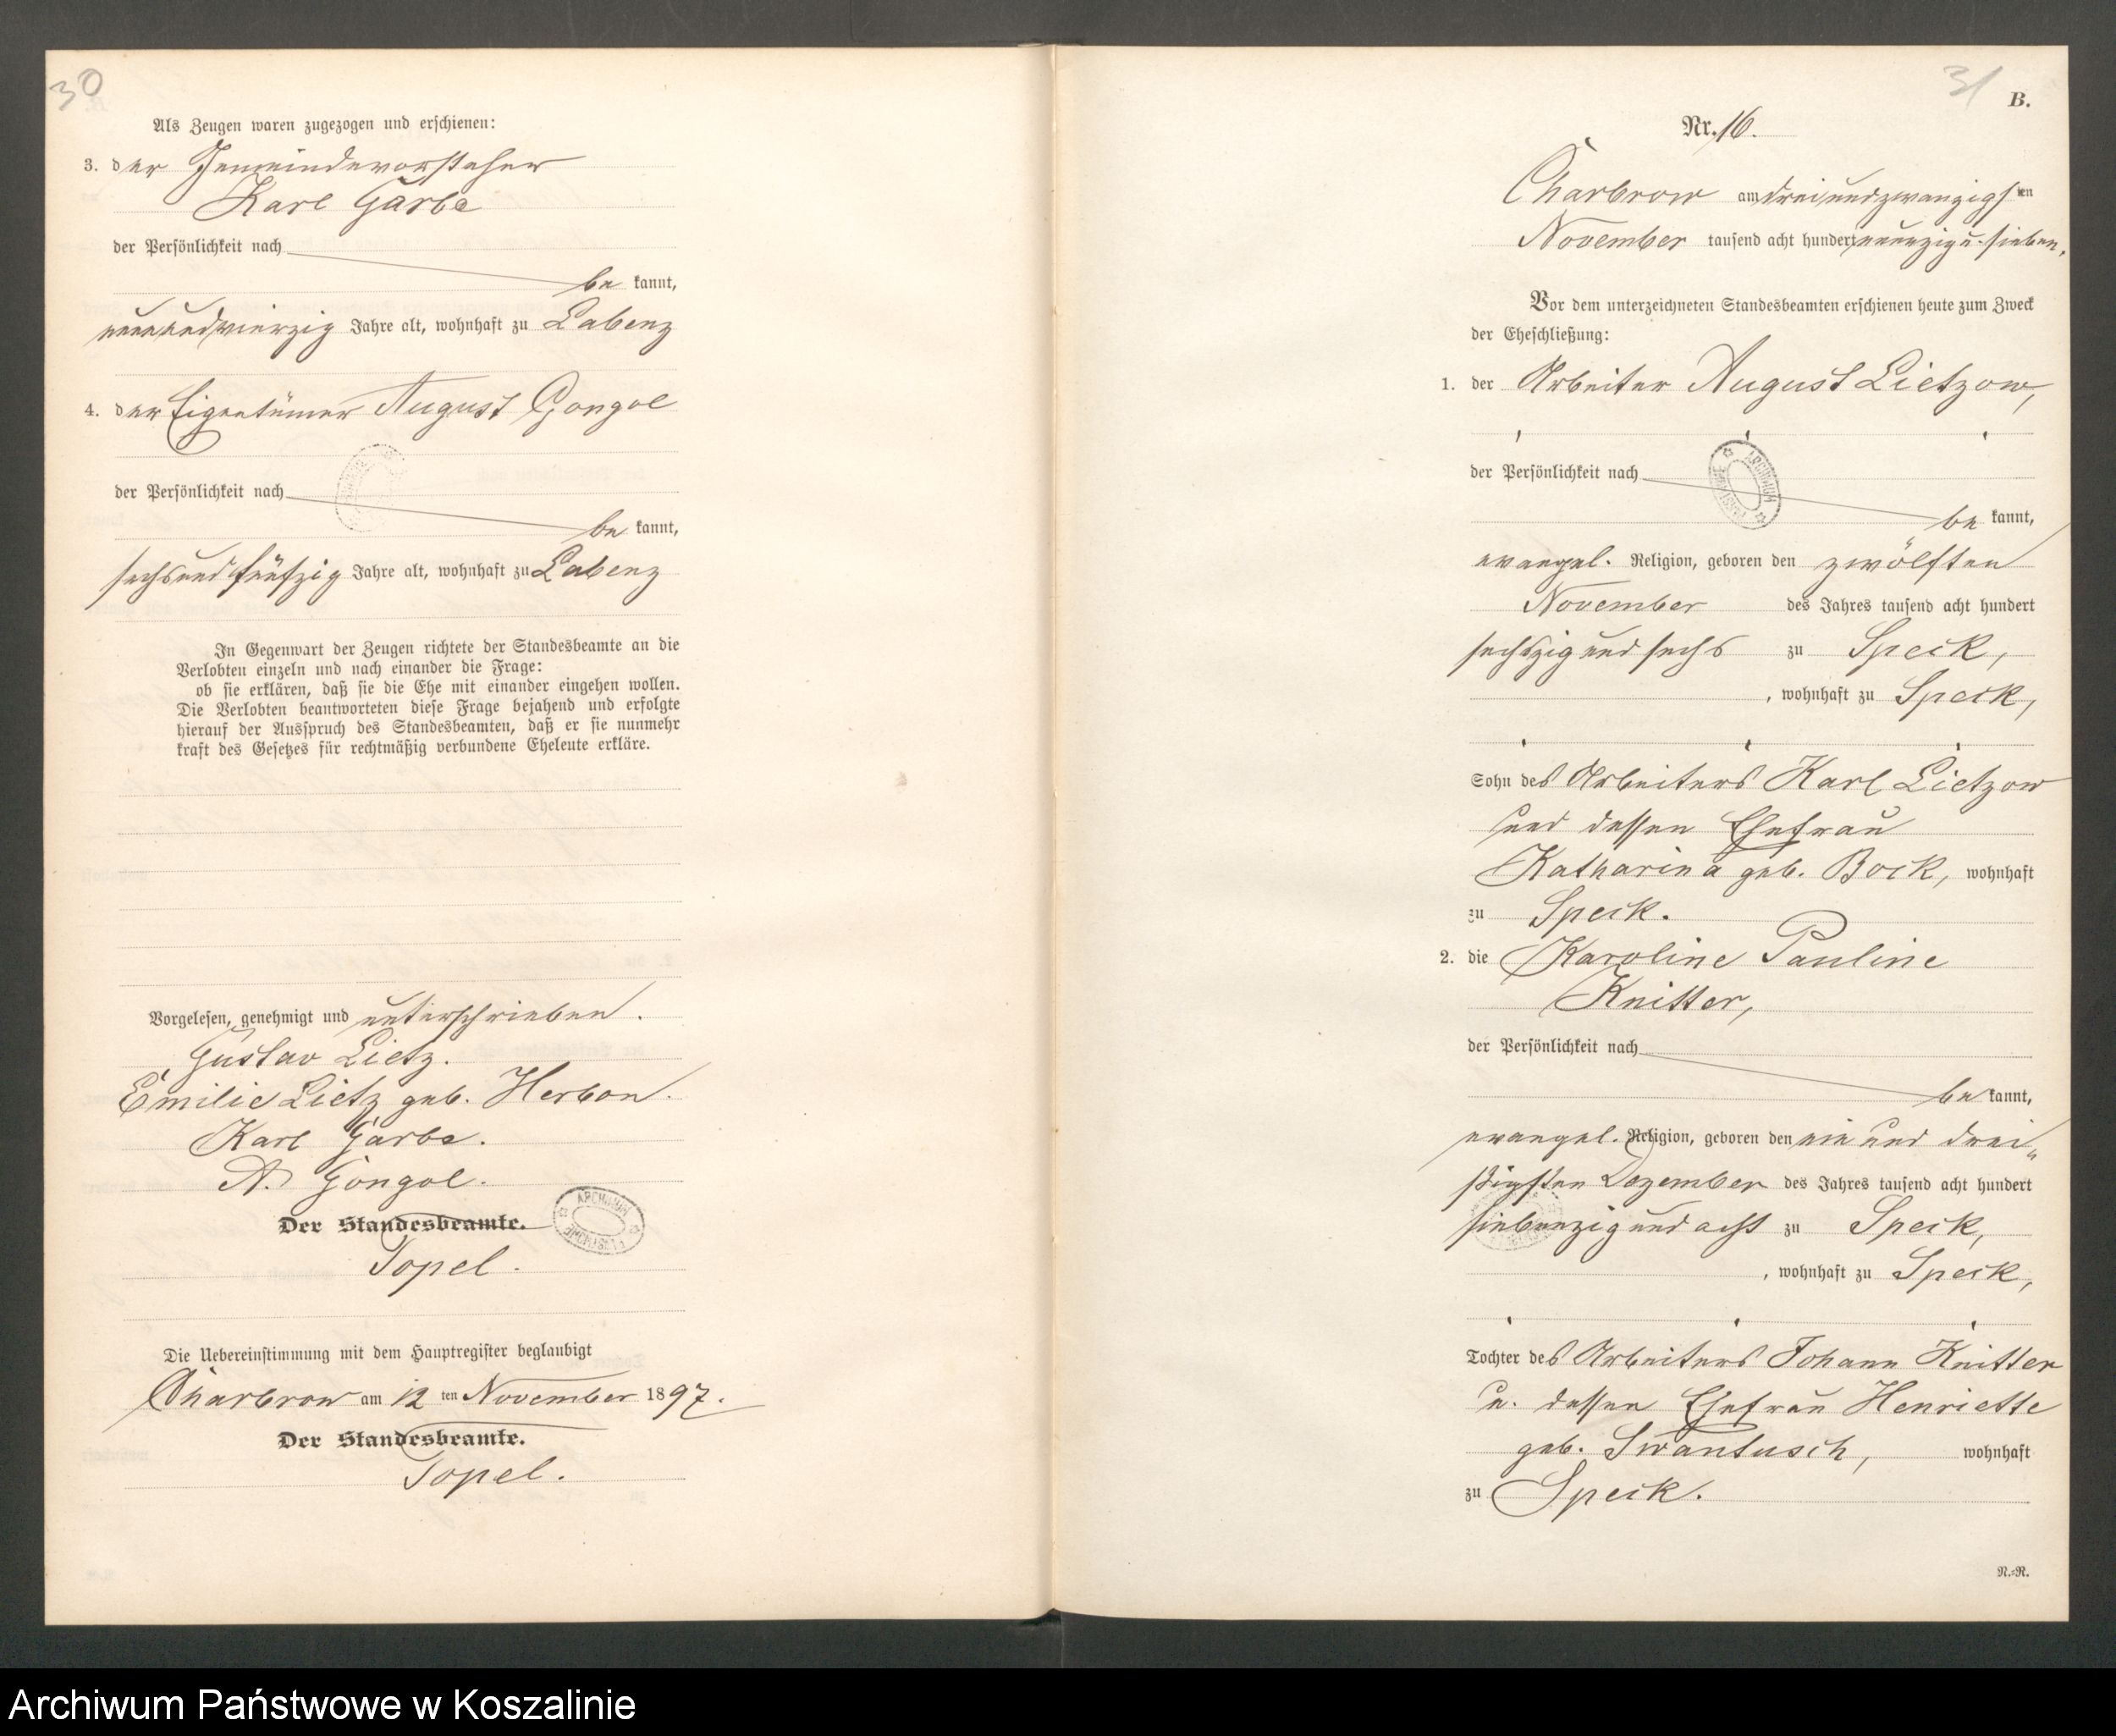 30
Als Zeugen waren zugezogen und erschienen:
3. der Gemeindevorsteher
Karl Garbe
der Persönlichkeit nach
be kannt,
neunundvierzig Jahre alt, wohnhaft zu Labenz
4. der Eigentümer August Gongol
der Persönlichkeit nach
be kannt,
sechsundfünfzig Jahre alt, wohnhaft zu Labenz
In Gegenwart der Zeugen richtete der Standesbeamte an die
Verlobten einzeln und nach einander die Frage:
ob sie erklären, daß sie die Ehe mit einander eingehen wollen.
Die Verlobten beantworteten diese Frage bejahend und erfolgte
hierauf der Ausspruch des Standesbeamten, daß er sie nunmehr
kraft des Gesetzes für rechtmäßig verbundene Eheleute erkläre.
Vorgelesen, genehmigt und unterschrieben.
Gustav Lietz.
Emilie Lietz geb. Herbon.
Karl Garbe.
A. Gongol.
Der Standesbeamte.
Topel.
Die Uebereinstimmung mit dem Hauptregister beglaubigt
Charbrow am 12 ten November 1897.
Der Standesbeamte.
Topel.
31
B.
Nr. 16.
Charbrow am dreiundzwanzigsten
November tausend acht hundert neunzig u. sieben.
Vor dem unterzeichneten Standesbeamten erschienen heute zum Zweck
der Eheschließung:
1. der Arbeiter August Lietzow,
der Persönlichkeit nach
be kannt,
evangel. Religion, geboren den zwölften
November des Jahres tausend acht hundert
sechszig und sechs zu Speck,
, wohnhaft zu Speck,
Sohn des Arbeiters Karl Lietzow
und dessen Ehefrau
Katharina geb. Bock, wohnhaft
zu Speck.
2. die Karoline Pauline
Knitter,
der Persönlichkeit nach
be kannt,
evangel. Religion, geboren den ein und drei„
ßigsten Dezember des Jahres tausend acht hundert
siebenzig und acht zu Speck,
, wohnhaft zu Speck,
Tochter des Arbeiters Johann Knitter
u. dessen Ehefrau Henriette
geb. Swantusch, wohnhaft
zu Speck.
N.=R.
Archiwum Państwowe w Koszalinie